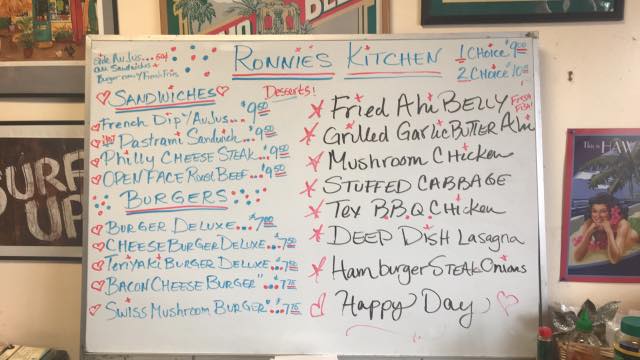 RONNIE'S KITCHEN
1 CHOICE $9.00
2 CHOICE $10.00
Side AuJus... 50¢
All Sandwiches +
Burger now w/ French Fries
SANDWICHES
Desserts!
French Dip w/ AuJus... $9.50
Hot Pastrami Sandwich... $9.50
Philly CHEESE STEAK... $9.50
OPEN FACE Roast BEEF... $9.50
BURGERS
BURGER DELUXE... $7.00
CHEESE BURGER DELUXE... $7.50
Teriyaki BURGER DELUXE... $7.50
BACON CHEESE BURGER" $7.75
SWISS MUSHROOM BURGER" $7.75
Fried Ahi BELLY FRESH FISH!
Grilled Garlic BUTTER Ahi
Mushroom Chicken
STUFFED CABBAGE
TEX B.B.Q. Chicken
DEEP DISH Lasagna
Hamburger STEAK Onions
Happy Day
SURF
UP
This is HAW